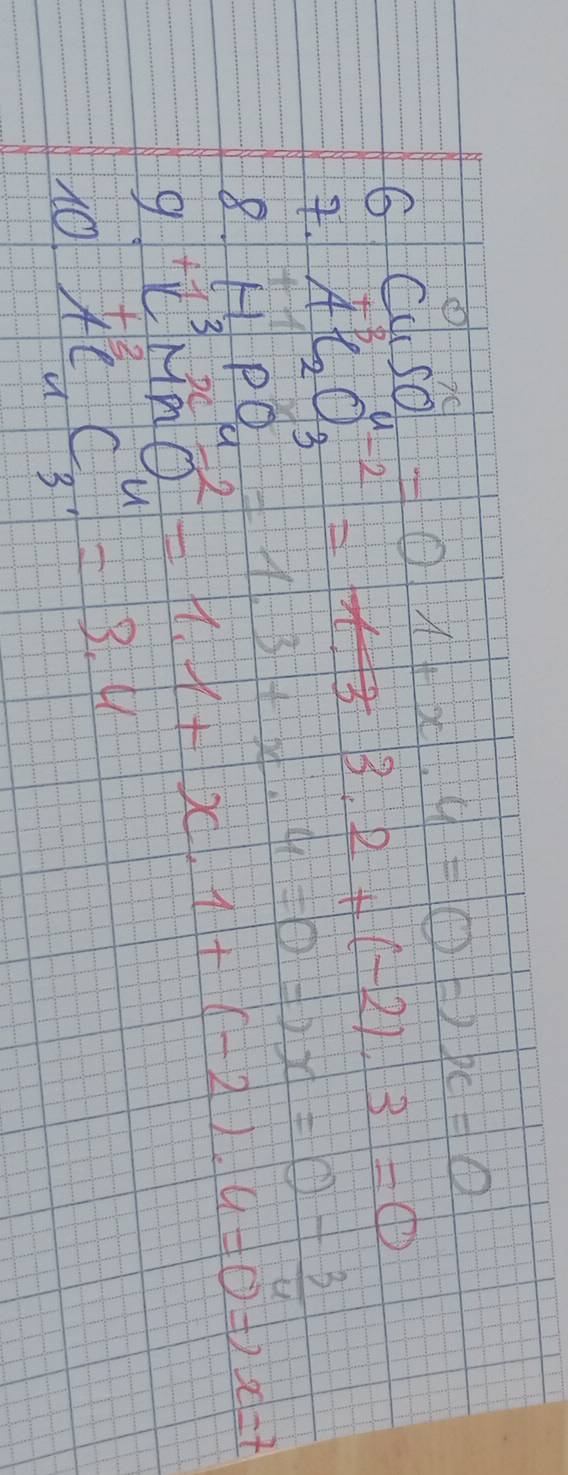 6 CuSO₄ = 0.1 + x.4 = 0 => x = 0
7. Al₂O₃ = 1.3 3.2 + (-2).3 = 0
8. H₃PO₄ = 1.3 + x.4 = 0 => x = 0 - 3/4
9. KMnO₄ = 1.1 + x.1 + (-2).4 = 0 => x = 7
10. Al₄C₃. = 3.4